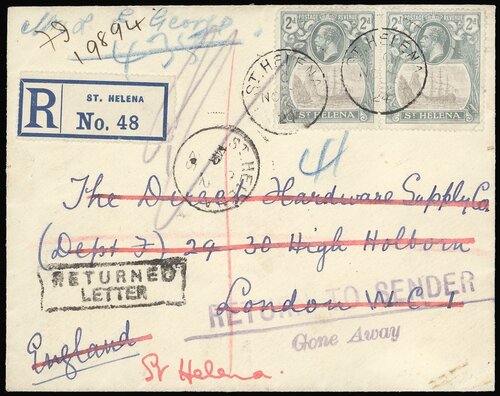 L. George
19894
POSTAGE REVENUE
2d 2d
ST HELENA
POSTAGE REVENUE
2d 2d
ST HELENA
ST. HELENA
ST. HELENA
R
ST. HELENA
No. 48
ST. HELENA
The Dixon Hardware Supply Co
(Dept F) 29 30 High Holborn
London W.C.1
England
RETURNED
LETTER
RETURN TO SENDER
Gone Away
St Helena.